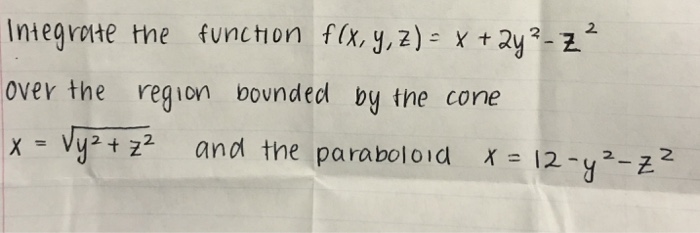 Integrate the function f(x, y, z) = x + 2y² - z²
over the region bounded by the cone
x = √y² + z² and the paraboloid x = 12 - y² - z²